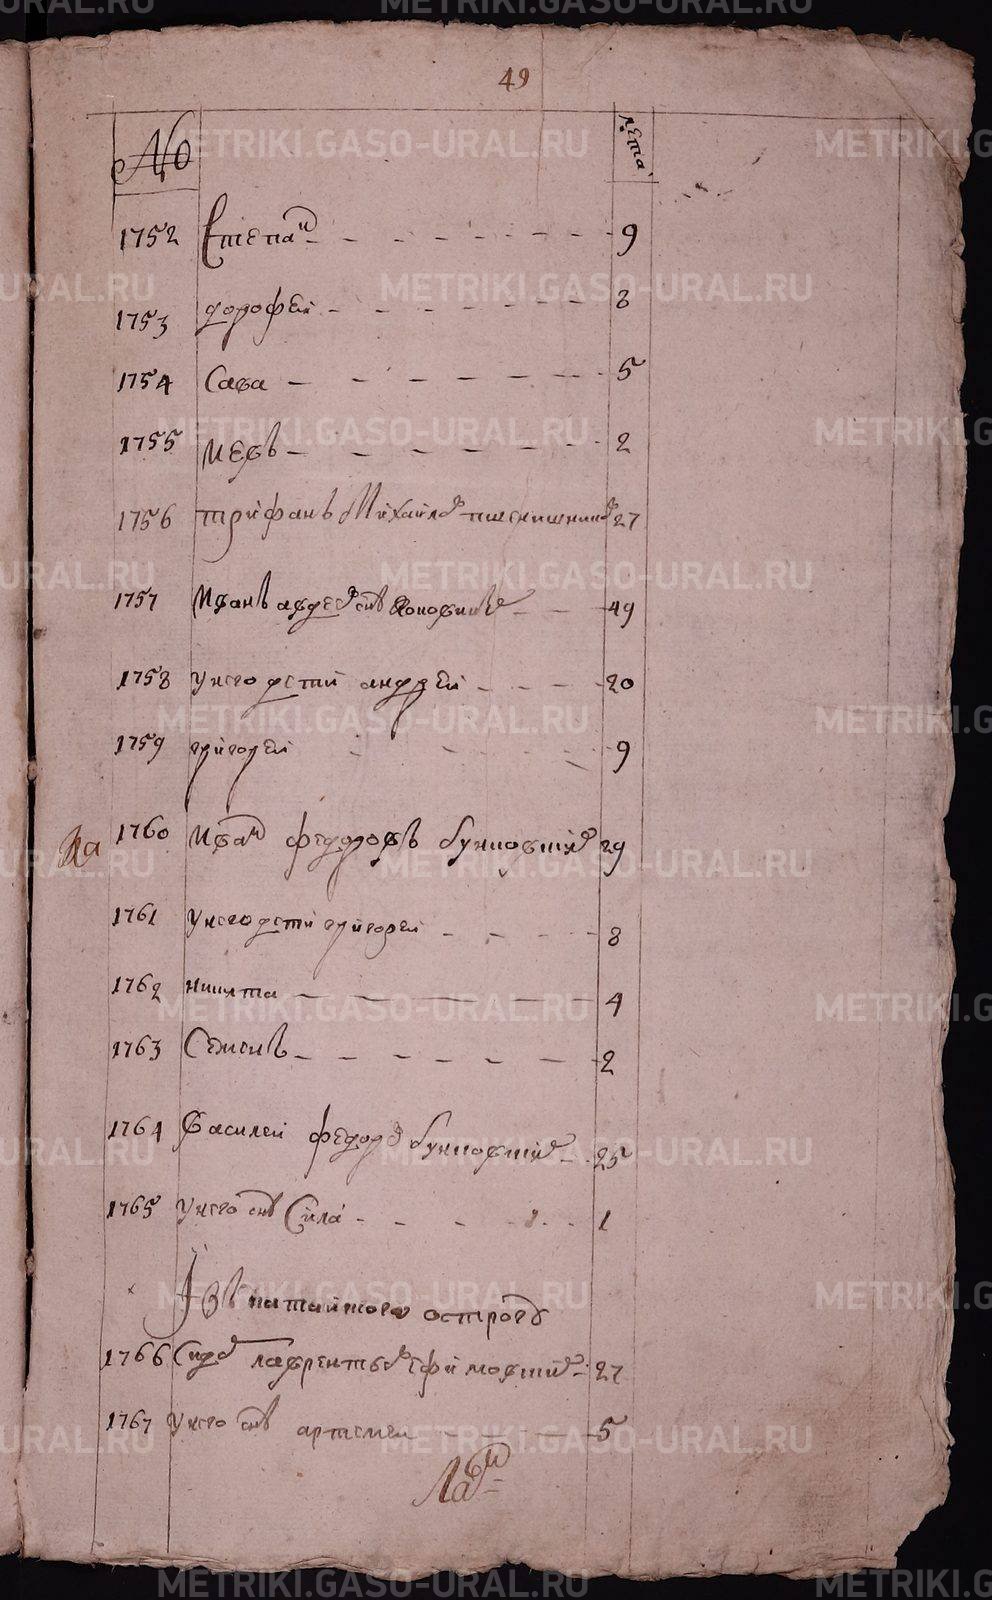 METRIKI.GASO-URAL.RU
49
№ лѣта
1752 Степанъ 9
1753 дорофей 8
1754 Сава 5
1755 Иевъ 2
1756 трифанъ Михайлов пшенишников 27
1757 Иванъ авдеев снъ Коновых 49
1758 у него дети андрей 20
1759 григорей 9
1760 Иван федоровъ буньковских 29
1761 у него дети григорей 8
1762 никита 4
1763 Семенъ 2
1764 Василей федоров буньковских 25
1765 у него снъ Сила 1
Ізъ катайского острогу
1766 Сидор лаврентьев ефимовских 27
1767 у него снъ артемей 5